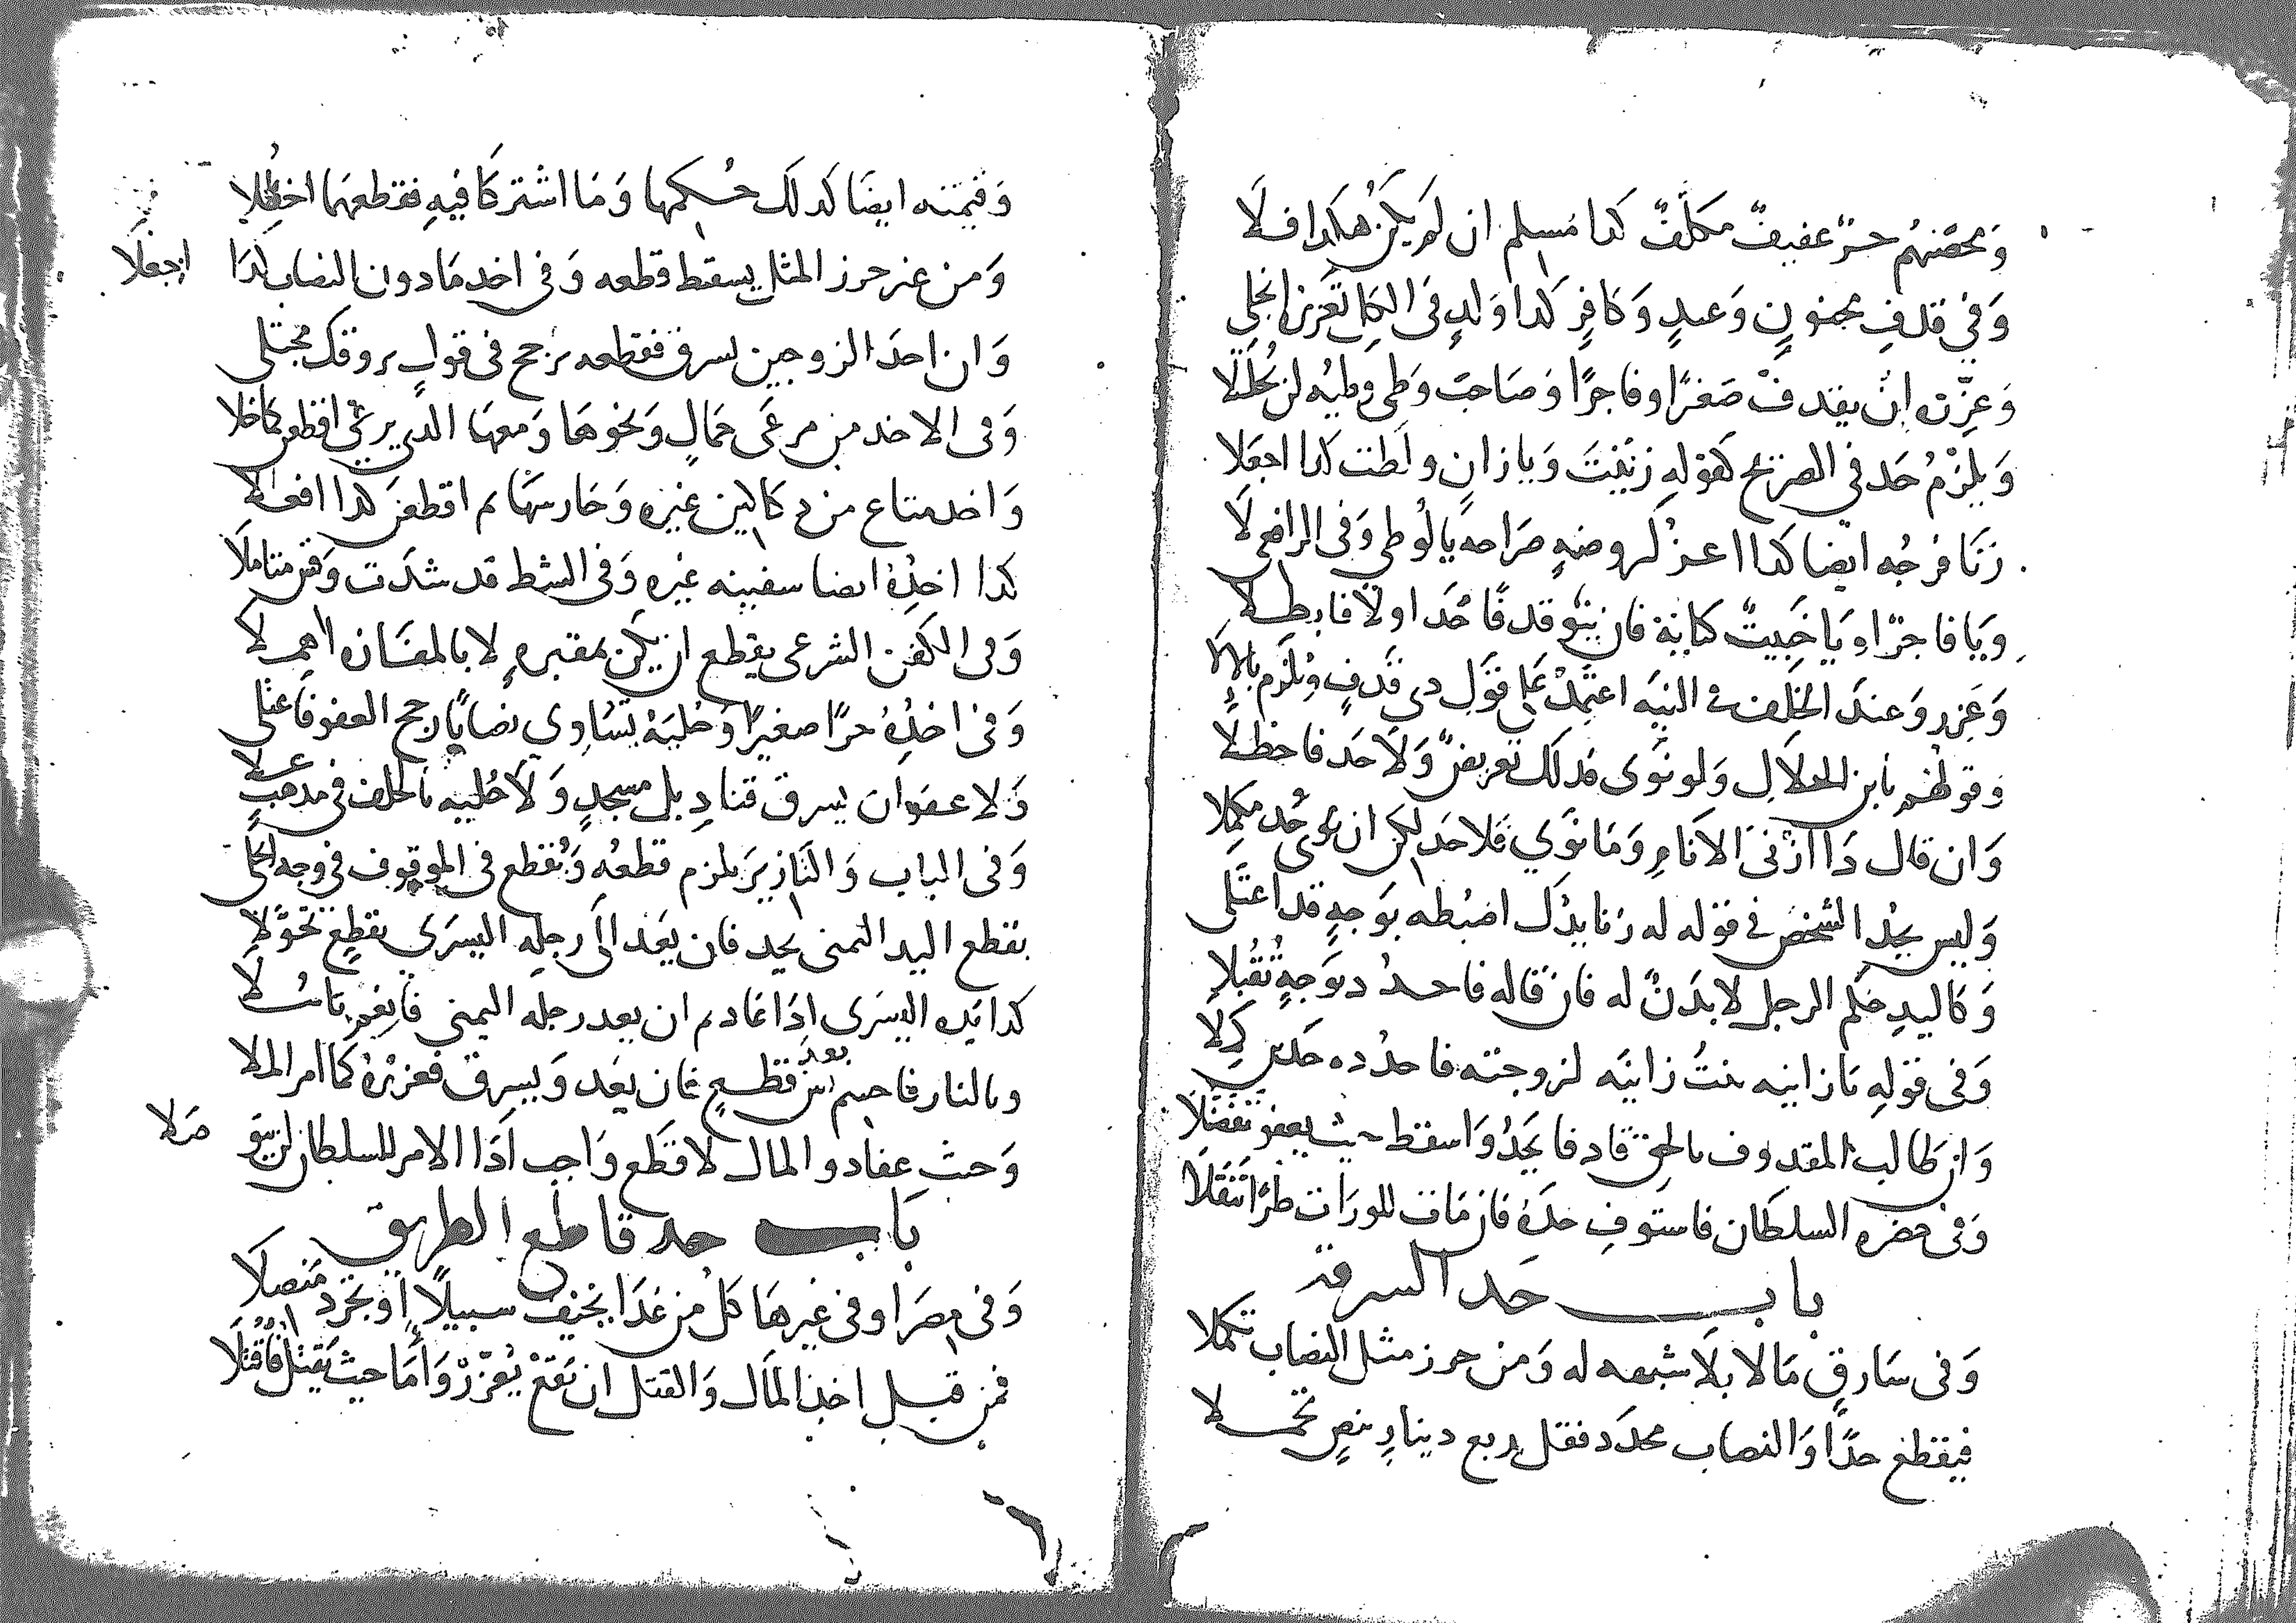 ومحصنهم حر عفيف مكلف كدا مسلم ان لم يكن هكدا فلا
وفي قدف مجنون وعبد وكافر كدا ولد في الكل تعزير انجلي
وعزره ان يقدف صغرا وفاجرا وصاحب وطي وطيه لن يحللا
ويلزم حد في الصريح كقوله زنيت ويا زان ولطت كدا اجعلا
زنا فرجه ايضا كدا اعز لروضه صراحه يا لوطي وفي الرافعي لا
ويا فاجرا ويا خبيث كناية فان ينو قدفا حد اولا فابطلا
وعزر وعند الخلف في النيه اعتمد على قول دي قدف ويلزم بالالا
وقولهم يا بن الحلال ولو نوى كدلك تعريض ولا حد فاحظلا
وان قال دا ازنى الانام وما نوي فلا حد لكن ان نوى حد مكملا
وليس يحد الشخص في قوله له زنا يدك اضبطه بوجه قد اعتلى
وكاليد حكم الرجل لا بدن له فان قاله فاحدد بوجه تقبلا
وفي قوله يا زانيه بنت زانيه لزوجته فاحدده حدين كلا
وان طالب المقدوف بالحق قادفا يحد واسقط حيث يعفو تفضلا
وفي حضره السلطان فاستوف حده فان مات للوراث طرا تنقلا
باب حد السرقة
وفي سارق مالا بلا شبهه له ومن حرز مثل النصاب تكملا
فيقطع حدا والنصاب محدد فقل ربع دينار بنص تحملا
وقيمته ايضا كدلك حكمها وما اشتركا فيه فقطعهما احظلا
ومن غير حرز المثل يسقط قطعه وفي اخد ما دون النصاب كدا اجعلا
وان احد الزوجين يسرق فقطعه يرجح في قول يروقك مجتلى
وفي الاخد من مرعى جمال ونحوها ومعها الدي يرعى اقطعن كما خلا
واخد متاع من دكاكين غيره وحارسها ثم اقطعن كدا افعلا
كدا اخده ايضا سفينه غيره وفي الشط قد شدت وقس متاملا
وفي الكفن الشرعي يقطع ان يكن بمقبره لا بالمفازه اهملا
وفي اخده حرا صغيرا وحليه تساوي نصابا رجح العفو فاعتلى
ولا عفو ان يسرق قناديل مسجد ولا حليه بالخلف في مدهب علا
وفي الباب والتازير يلزم قطعه ويقطع في الموقوف في وجه انجلى
بقطع اليد اليمنى يحد فان يعد الى رجله اليسري بقطع تحولا
كدا يده اليسرى ادا عاد ثم ان يعد رجله اليمنى
وبالنار فاحسم بعد قطع فان يعد ويسرق فعزره كما امر الملا
وحيث عفا دو المال لا قطع واجب ادا الامر للسلطان لن يتوصلا
باب حد قاطع الطريق
وفي مصر او في غيرها كل من غدا يخيف سبيلا او يجرد منصلا
فمن قبل اخذ المال والقتل ان يقع يعزر واما حيث يقتل فاقتلا